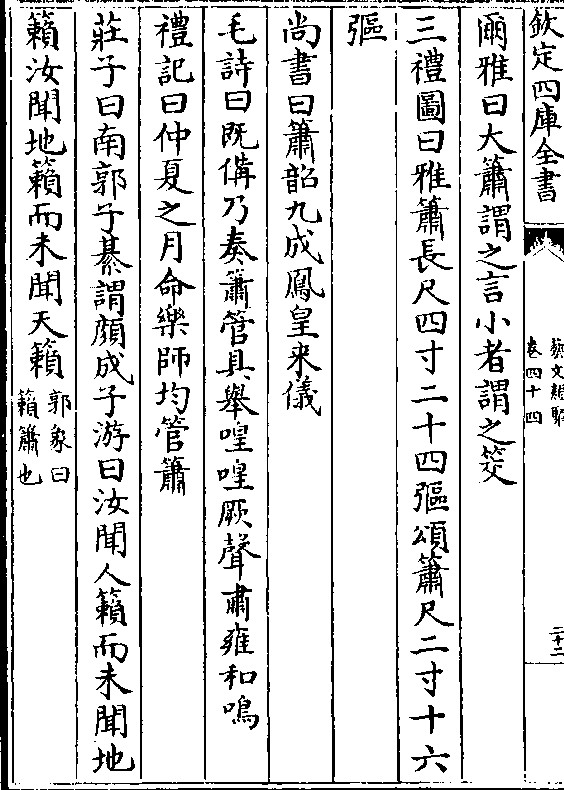 欽定四庫全書
藝文類聚
卷四十四
二十二
爾雅曰大簫謂之言小者謂之筊
三禮圖曰雅簫長尺四寸二十四彄頌簫尺二寸十六
彄
尚書曰簫韶九成鳳皇來儀
毛詩曰既備乃奏簫管具舉喤喤厥聲肅雍和鳴
禮記曰仲夏之月命樂師均管簫
莊子曰南郭子綦謂顔成子游曰汝聞人籟而未聞地
籟汝聞地籟而未聞天籟
郭象曰
籟簫也